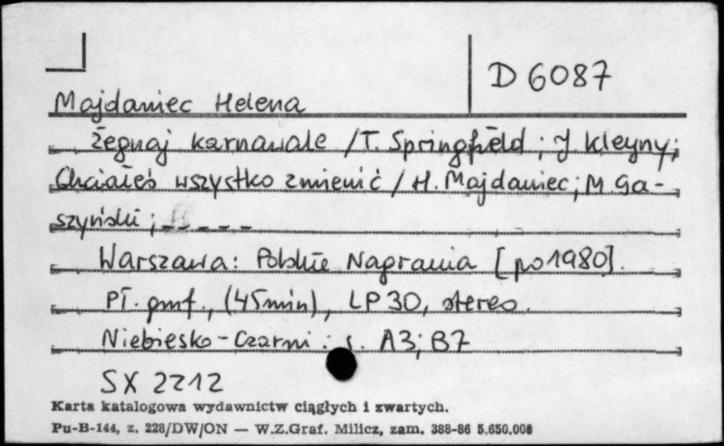 D 6087
Majdaniec Helena
Żegnaj karnawale / T. Springfield ; J Kleyny;
Chciałeś wszystko zmienić / H. Majdaniec; M Ga-
szyński ; _ _ _ _ _
Warszawa: Polskie Nagrania [po 1980].
Pł. gmf., (45min), LP 30, stereo.
Niebiesko-Czarni : s. A3; B7
SX 2212
Karta katalogowa wydawnictw ciągłych i zwartych.
Pu-B-144, z. 228/DW/ON — W.Z.Graf. Milicz, zam. 388-86 5.650.000